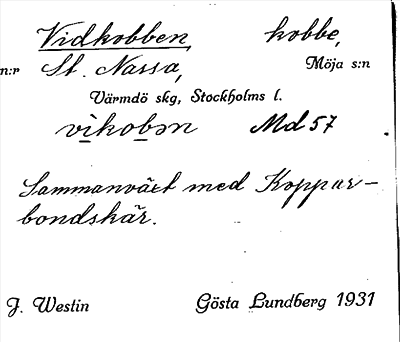 Vidkobben, kobbe,
n:r St. Nassa, Möja s:n
Värmdö skg, Stockholms l.
vikobən Md 57
Sammanväxt med Koppar-
bondskär.
J. Westin Gösta Lundberg 1931